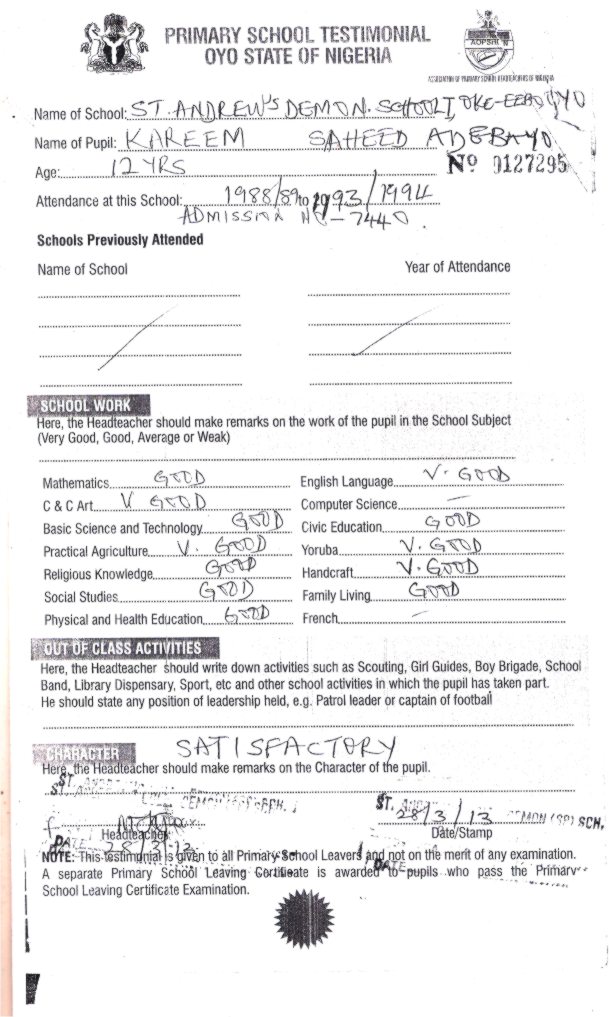 PRIMARY SCHOOL TESTIMONIAL
OYO STATE OF NIGERIA
AOPSHON
ASSOCIATION OF PRIMARY SCHOOL HEADTEACHERS OF NIGERIA
Name of School: ST. ANDREW'S DEMON. SCHOOL I, OKE-EEBO OYO
Name of Pupil: KAREEM SAHEED ADEBAYO
Age: 12 YRS
Nº 0127295
Attendance at this School: 1988/89 to 1993/1994
ADMISSION NO - 7440.
Schools Previously Attended
Name of School Year of Attendance
SCHOOL WORK
Here, the Headteacher should make remarks on the work of the pupil in the School Subject
(Very Good, Good, Average or Weak)
Mathematics GOOD English Language V. GOOD
C & C Art V GOOD Computer Science —
Basic Science and Technology GOOD Civic Education GOOD
Practical Agriculture V. GOOD Yoruba V. GOOD
Religious Knowledge GOOD Handcraft V. GOOD
Social Studies GOOD Family Living GOOD
Physical and Health Education GOOD French —
OUT OF CLASS ACTIVITIES
Here, the Headteacher should write down activities such as Scouting, Girl Guides, Boy Brigade, School
Band, Library Dispensary, Sport, etc and other school activities in which the pupil has taken part.
He should state any position of leadership held, e.g. Patrol leader or captain of football
CHARACTER SATISFACTORY
Here, the Headteacher should make remarks on the Character of the pupil.
ST. DEMON (SP) SCH.
28/3/13
Headteacher Date/Stamp
DATE 28/3/13
NOTE: This testimonial is given to all Primary School Leavers and not on the merit of any examination.
A separate Primary School Leaving Certificate is awarded to pupils who pass the Primary
School Leaving Certificate Examination.